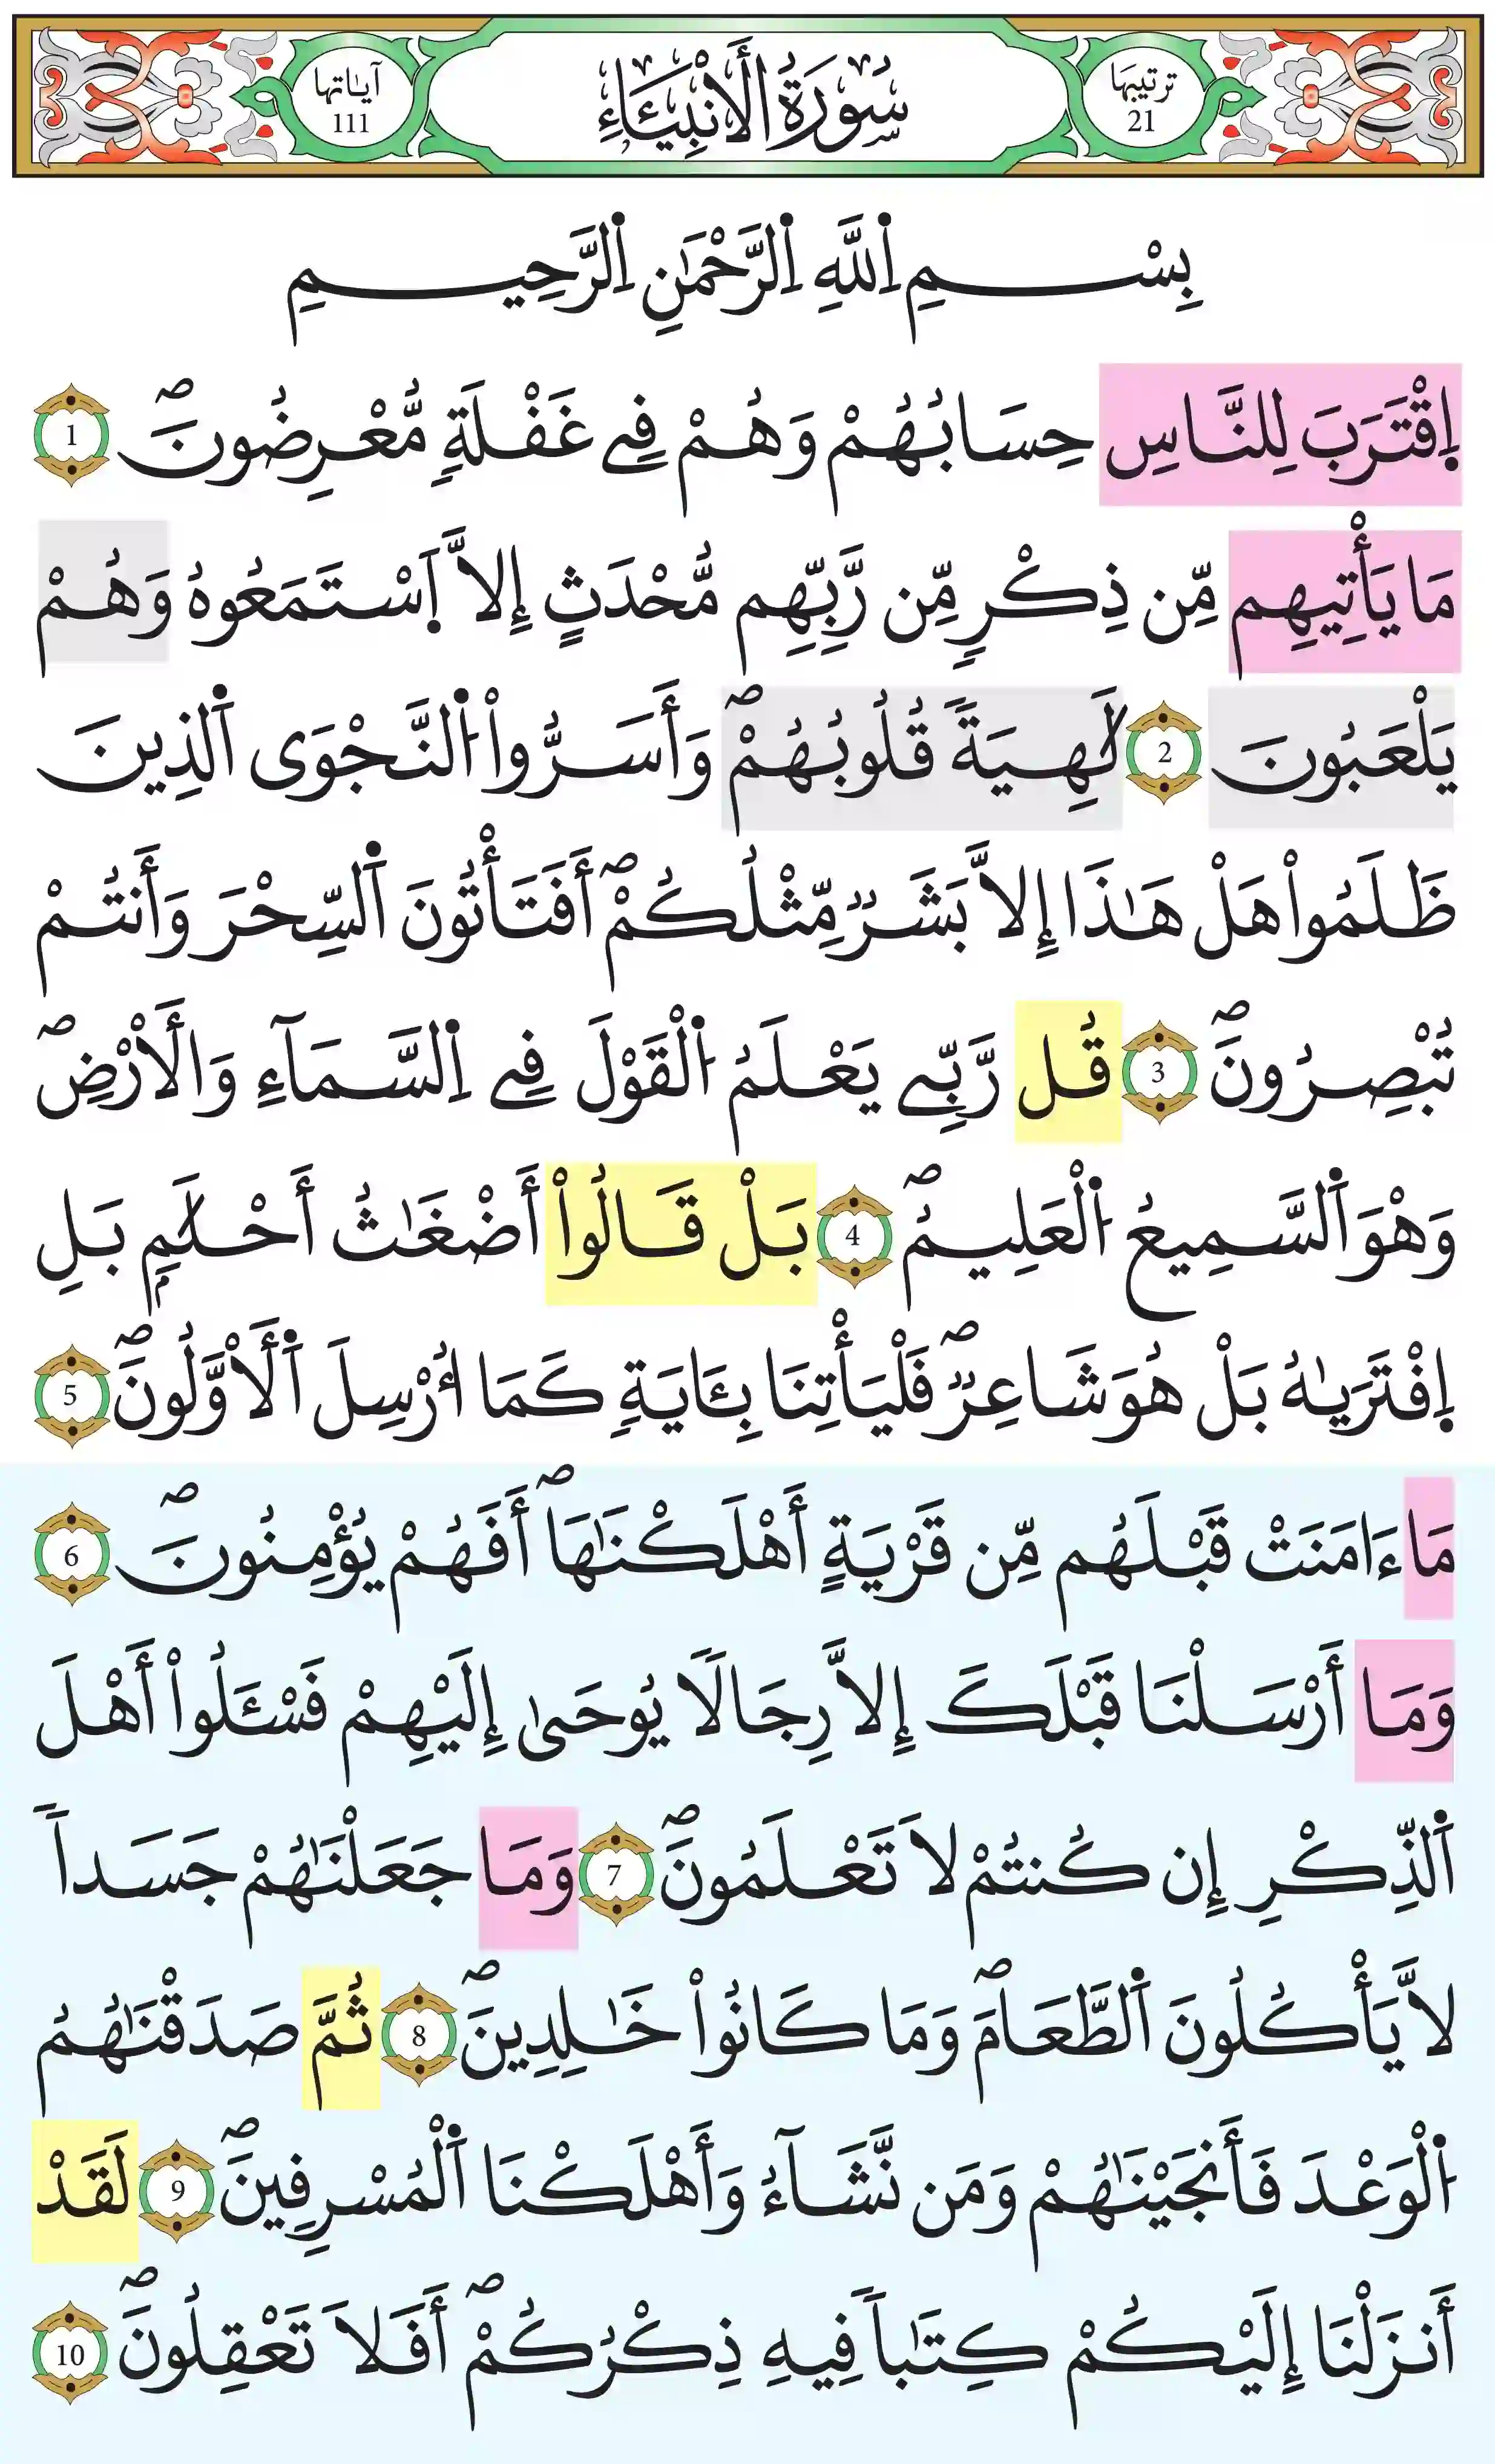 ترتيبها
21
سُورَةُ الْأَنْبِيَاءِ
آياتها
111
بِسْمِ اِ۬للَّهِ اِ۬لرَّحْمَٰنِ اِ۬لرَّحِيمِ
اِ۪قْتَرَبَ لِلنَّاسِ حِسَابُهُمْ وَهُمْ فِے غَفْلَةٖ مُّعْرِضُونَۖ 1
مَا يَأْتِيهِم مِّن ذِكْرٖ مِّن رَّبِّهِم مُّحْدَثٍ إِلَّا اَ۪سْتَمَعُوهُ وَهُمْ
يَلْعَبُونَ 2 لَٰهِيَةٗ قُلُوبُهُمْۖ وَأَسَرُّواْ اُ۬لنَّجْوَى اَ۬لذِينَ
ظَلَمُواْ هَلْ هَٰذَا إِلَّا بَشَرٞ مِّثْلُكُمْۖ أَفَتَأْتُونَ اَ۬لسِّحْرَ وَأَنتُمْ
تُبْصِرُونَۖ 3 قُل رَّبِّے يَعْلَمُ اُ۬لْقَوْلَ فِے اِ۬لسَّمَآءِ وَالْأَرْضِۖ
وَهْوَ اَ۬لسَّمِيعُ اُ۬لْعَلِيمُۖ 4 بَلْ قَالُواْ أَضْغَٰثُ أَحْلَٰمِۢ بَلِ
اِ۪فْتَرَيٰهُ بَلْ هُوَ شَاعِرٞۖ فَلْيَأْتِنَا بِـَٔايَةٖ كَمَا أُرْسِلَ اَ۬لْأَوَّلُونَۖ 5
مَا ءَامَنَتْ قَبْلَهُم مِّن قَرْيَةٍ أَهْلَكْنَٰهَاۖ أَفَهُمْ يُؤْمِنُونَۖ 6
وَمَا أَرْسَلْنَا قَبْلَكَ إِلَّا رِجَالٗا يُوحَىٰ إِلَيْهِمْ فَسْـَٔلُواْ أَهْلَ
اَ۬لذِّكْرِ إِن كُنتُمْ لَا تَعْلَمُونَۖ 7 وَمَا جَعَلْنَٰهُمْ جَسَداٗ
لَّا يَأْكُلُونَ اَ۬لطَّعَامَۖ وَمَا كَانُواْ خَٰلِدِينَۖ 8 ثُمَّ صَدَقْنَٰهُمُ
اُ۬لْوَعْدَ فَأَنجَيْنَٰهُمْ وَمَن نَّشَآءُ وَأَهْلَكْنَا اَ۬لْمُسْرِفِينَۖ 9 لَقَدْ
أَنزَلْنَا إِلَيْكُمْ كِتَٰباٗ فِيهِ ذِكْرُكُمْۖ أَفَلَا تَعْقِلُونَۖ 10